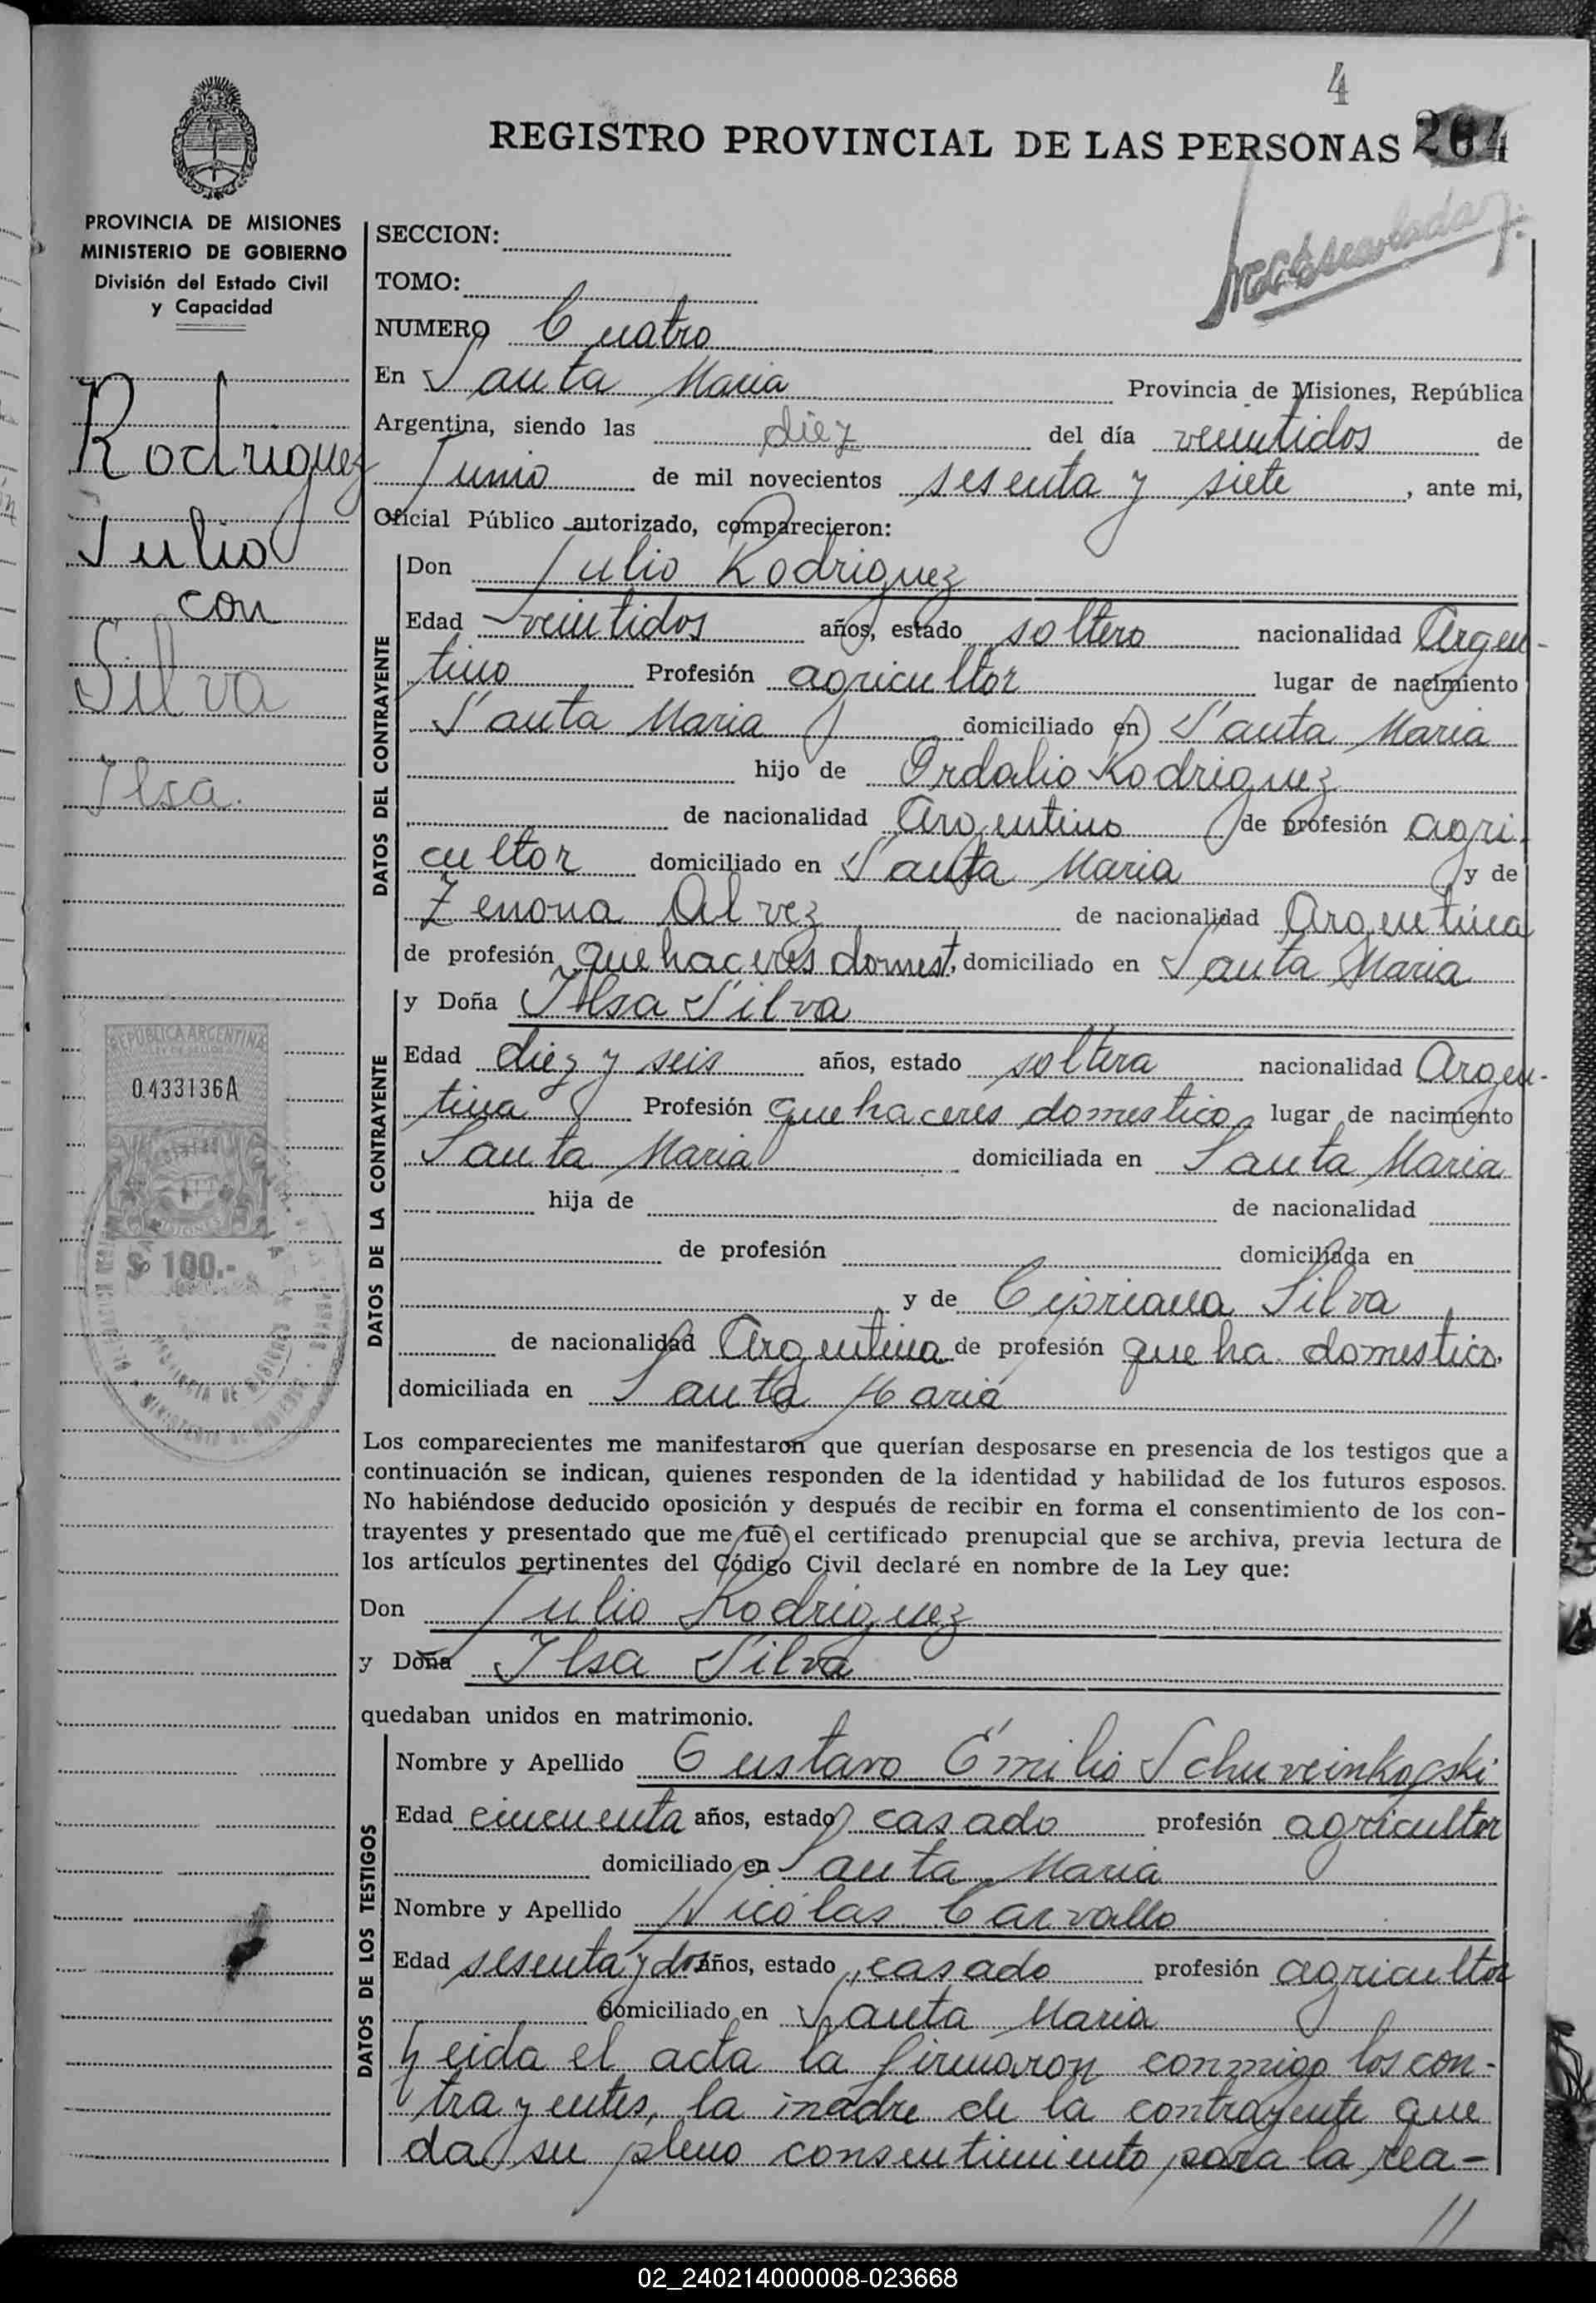 4
REGISTRO PROVINCIAL DE LAS PERSONAS 204
PROVINCIA DE MISIONES
MINISTERIO DE GOBIERNO
División del Estado Civil
y Capacidad
Rodriguez
Julio
con
Silva
Ilsa.
REPUBLICA ARGENTINA
0.433136A
$ 100.-
SECCION:
TOMO:
NUMERO Cuatro
En Santa Maria Provincia de Misiones, República
Argentina, siendo las diez del día veintidos de
Junio de mil novecientos sesenta y siete, ante mi,
Oficial Público autorizado, comparecieron:
DATOS DEL CONTRAYENTE
Don Julio Rodriguez
Edad veintidos años, estado soltero nacionalidad Argen-
tino Profesión agricultor lugar de nacimiento
Santa Maria domiciliado en Santa Maria
hijo de Ordalio Rodriguez
de nacionalidad Argentino de profesión agri-
cultor domiciliado en Santa Maria y de
Zenona Alvez de nacionalidad Argentina
de profesión quehaceres domest. domiciliado en Santa Maria
DATOS DE LA CONTRAYENTE
y Doña Ilsa Silva
Edad diez y seis años, estado soltera nacionalidad Argen-
tina Profesión quehaceres domestico lugar de nacimiento
Santa Maria domiciliada en Santa Maria
hija de de nacionalidad
de profesión domiciliada en
y de Cipriana Silva
de nacionalidad Argentina de profesión queha. domestico.
domiciliada en Santa Maria
Los comparecientes me manifestaron que querían desposarse en presencia de los testigos que a
continuación se indican, quienes responden de la identidad y habilidad de los futuros esposos.
No habiéndose deducido oposición y después de recibir en forma el consentimiento de los con-
trayentes y presentado que me fué el certificado prenupcial que se archiva, previa lectura de
los artículos pertinentes del Código Civil declaré en nombre de la Ley que:
Don Julio Rodriguez
y Doña Ilsa Silva
quedaban unidos en matrimonio.
DATOS DE LOS TESTIGOS
Nombre y Apellido Gustavo Emilio
Edad cincuenta años, estado casado profesión agricultor
domiciliado en Santa Maria
Nombre y Apellido Nicolas Carvallo
Edad sesenta y dos años, estado casado profesión agricultor
domiciliado en Santa Maria
Leida el acta la firmaron conmigo los con-
trayentes, la madre de la contrayente que
da su pleno consentimiento para la rea-
//
02_240214000008-023668